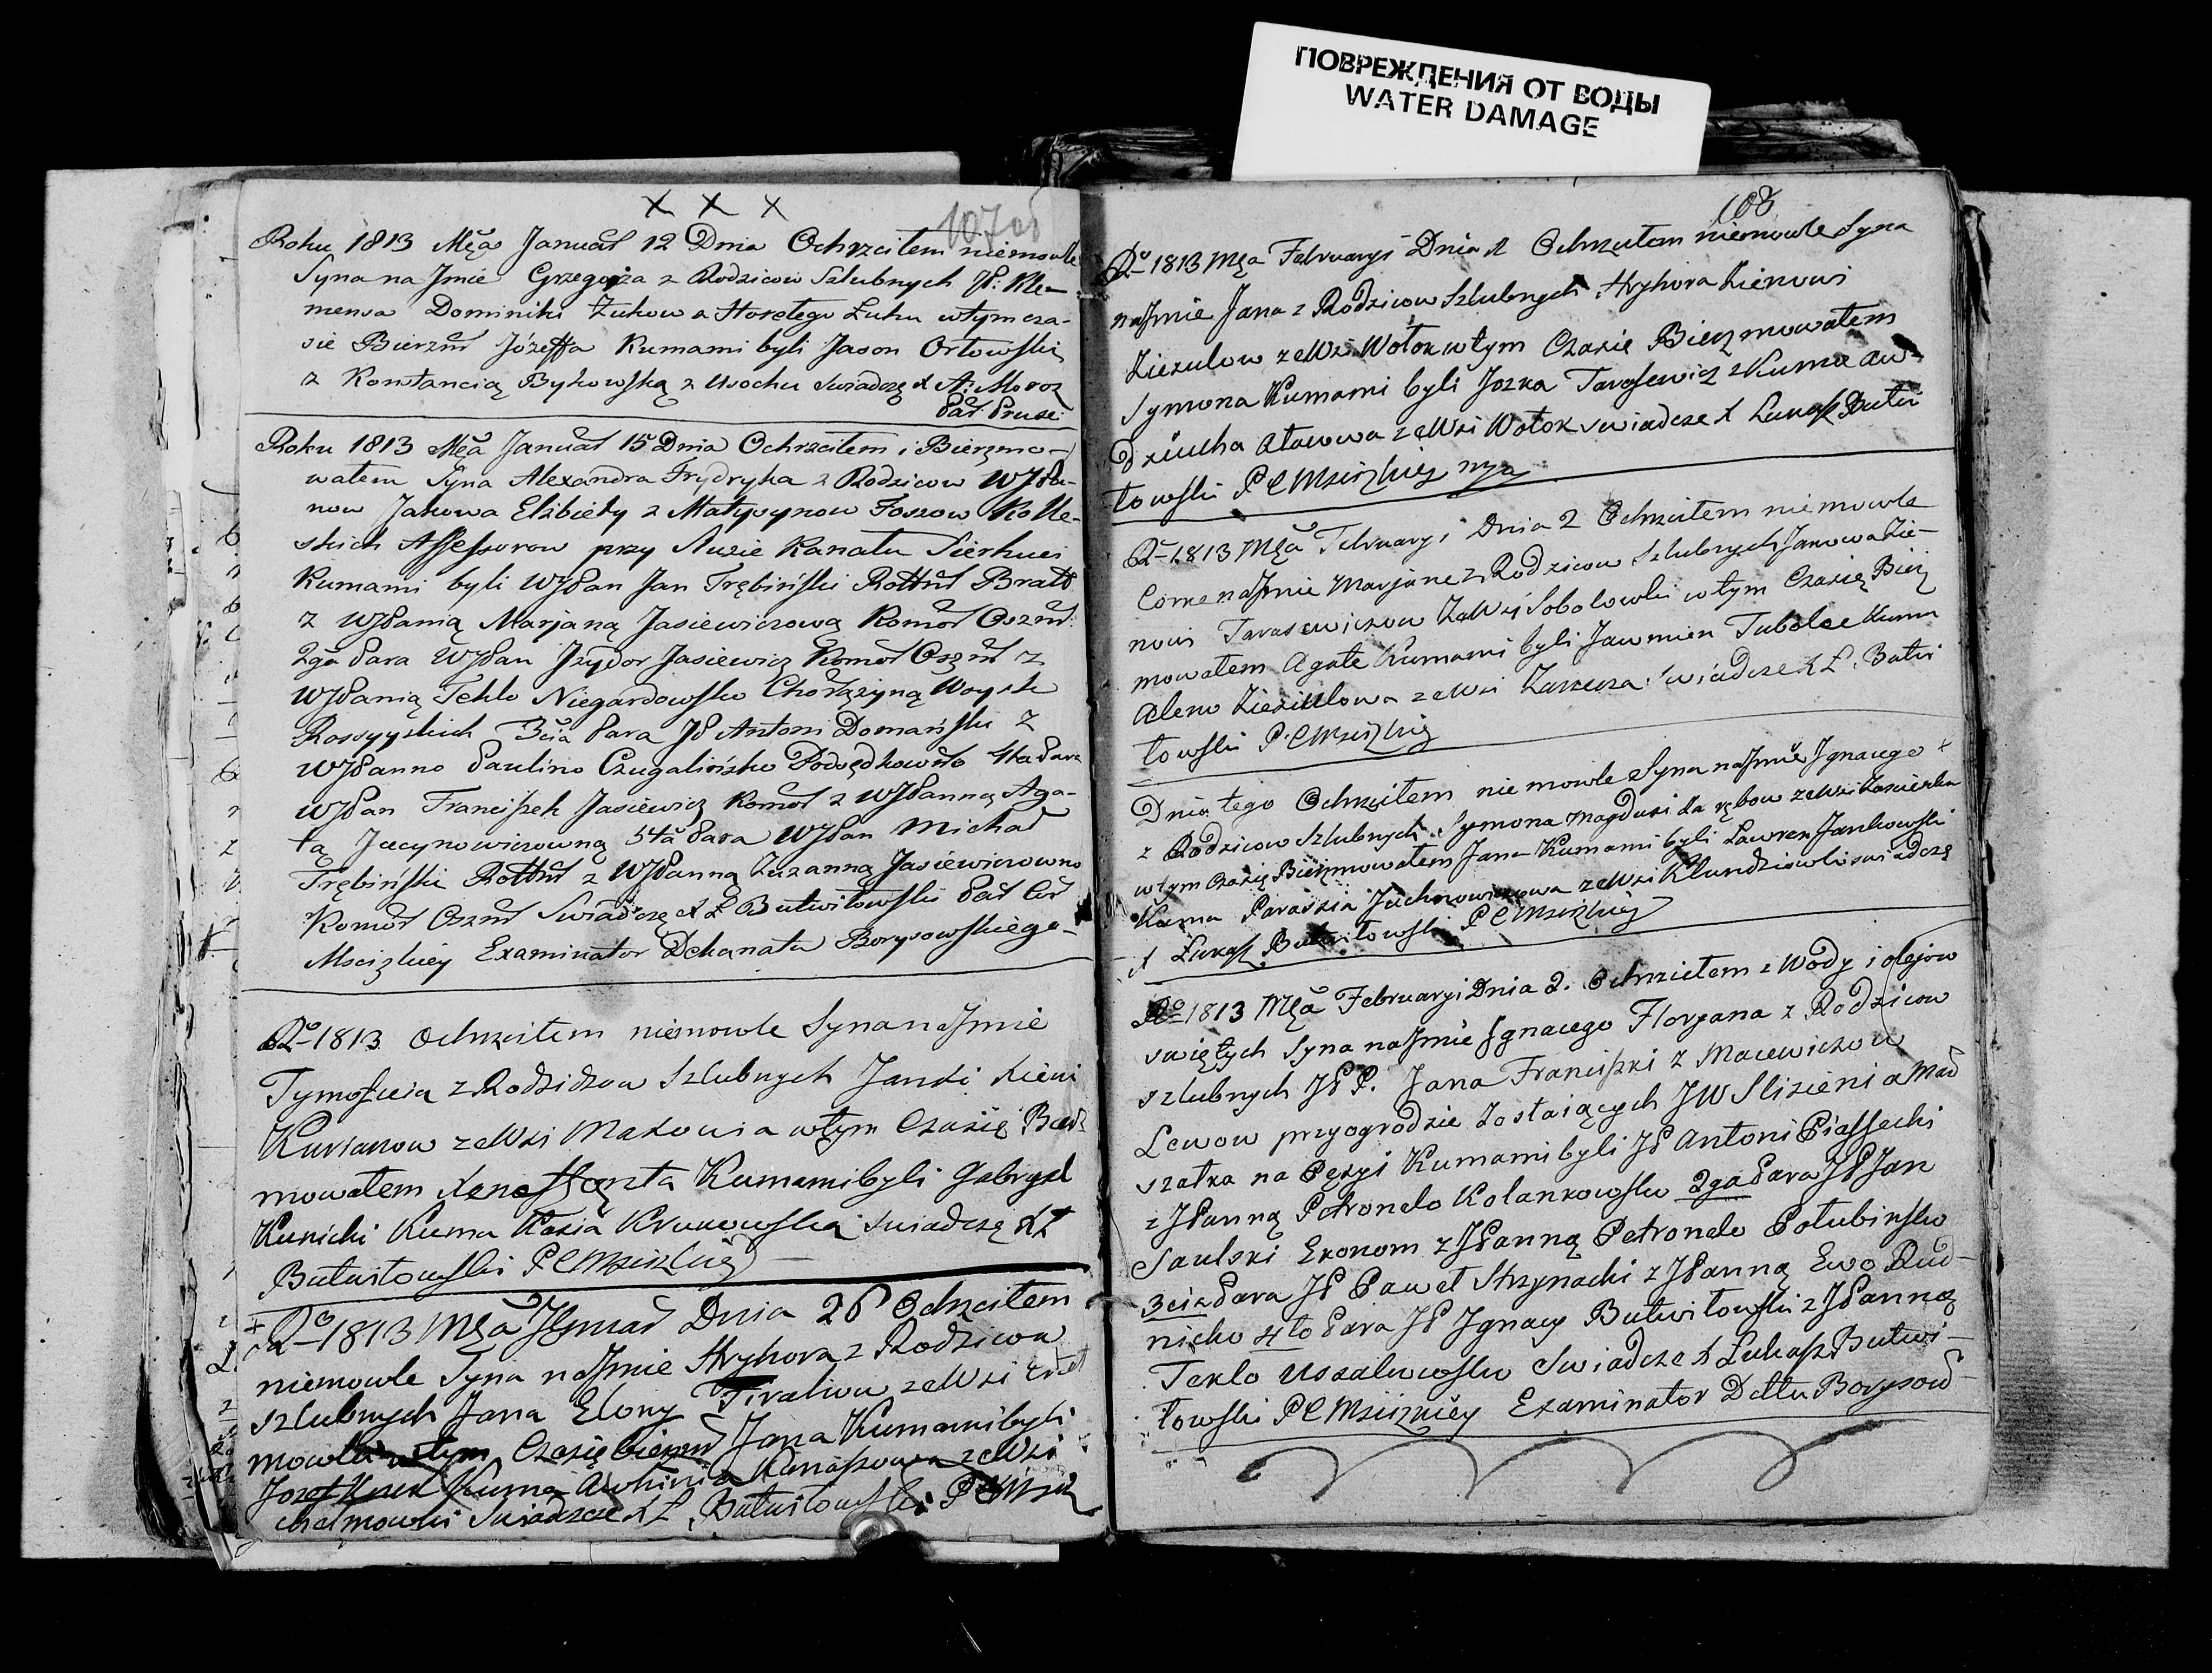 ПОВРЕЖДЕНИЯ ОТ ВОДЫ
WATER DAMAGE
x x x
107об
Roku 1813 Mca Januar 12 Dnia Ochrzciłem niemowle
Syna na Jmie Grzegorza z Rodzicow Szlubnych JP: Kle-
mensa Dominiki Żukow a Starętego Żuku wtym cza-
sie Bierzm Józeffa Kumami byli Jason Orłowski
z Konstancią Bykowską z Usochu swiadczę X A: Moroz
Roku 1813 Mca Januar 15 Dnia Ochrzciłem i Bierzmo-
wałem Syna Alexandra Frydryka z Rodzicow WJPa-
now Jakowa Elżbiety z Matysynow Foszow Kolle-
skich Assessorow przy Sluzie Kanału Sierhuci
Kumami byli WJPan Jan Trębiński Rottm Bratt
z WJPanią Marjaną Jasiewiczową Komor Oszm:
2ga Para WJPan Jzydor Jasiewicz Komor Oszm z
WJPanią Teklo Niegardowsko Chorążyną Woysk
Rossyyskich 3cia Para JP Antoni Domański z
WJPanno Paulino Czugalińsko Podsędkowno 4ta Para
WJPan Franciszek Jasiewicz Komor z WJPanną Aga-
tą Jucynowiczowną 5ta Para WJPan Michał
Trębiński Rottm z WJPanną Zuzanną Jasiewiczowno
Komor Oszm Swiadczę X Ł Butwiłowski Par Cer
Mscizkiey Examinator Dekanatu Borysowskiego
Ro 1813 Ochrzciłem niemowle Syna na Jmie
Tymofieia z Rodzidzow Szlubnych Janki Xieni
Kursanow ze Wsi Makowia wtym Czasie Bierz
mowałem Xenofonta Kumami byli Gabryel
Kunicki Kuma Kazia Krukowska swiadczę X Ł
Butwiłowski P C Mscizkiey
Ro 1813 Mca Januar Dnia 26 Ochrzciłem
niemowle Syna na Jmie Hryhora z Rodzicow
szlubnych Jana Elony ze Wsi
mowki wtym Czasie bierzm Jana Kumami byli
Jozef Kuma ze Wsi
Swiadcze X Ł. Butwiłowski P C Msciz
108
Ro 1813 Mca Februaryi Dnia 1 Ochrzciłem niemowle Syna
na Jmie Jana z Rodzicow Szlubnych Hryhora Xienowi
Ziezulow ze Wsi Wołok wtym Czasie Bierzmowałem
Symona Kumami byli Jozka Tarasewicz z Kumą Aw-
dziucha Atawowa ze Wsi Wołok swiadcze X Łukasz Butwi
łowski P C Mscizkiey
Ro 1813 Mca Februaryi Dnia 2 Ochrzciłem niemowle
Corke na Jmie Marjane z Rodzicow Szlubnych Janowa Zie-
nowi Tarasewiczow Ze Wsi Sobolowki wtym Czasie Bierz
mowałem Agate Kumami byli Jawmien Tubolec Kuma
Alena Ziezulowa ze Wsi swiadcze X Ł. Butwi
łowski P. C Mscizkiey
Dnia tego Ochrzciłem niemowle Syna na Jmie Jgnacego
z Rodzicow Szlubnych Symona Magdusi ze Wsi
wtym Czasie Bierzmowałem Jana Kumami byli Lawren Jankowski
Kuma Paraskia Juchnowiczowa ze Wsi Klundziowki swiadczę
X Łukasz Butwiłowski P C Mscizkiey
Ro 1813 Mca Februaryi Dnia 2. Ochrzciłem z Wody i olejow
swiętych Syna na Jmie Jgnacego Florjana z Rodzicow
szlubnych JP P. Jana Franciszki z Macewiczow
Lewow przyogrodzie Zostaiących JW Slizieni a Mar
szałka na Pęsyi Kumami byli JP Antoni Piassecki
z JPanną Petronelo Kolankowsko 2ga Para JP Jan
Saulski Ekonom z JPanną Petronelo Połubinsko
3cia Para JP Paweł Strzynacki z JPanną Ewo Rud-
nicko 4to Para JP Jgnacy Butwiłowski z JPanną
Teklo Uszalowsko Swiadcze X Łukasz Butwi-
łowski P C Mscizkiey Examinator Dettu Borysow